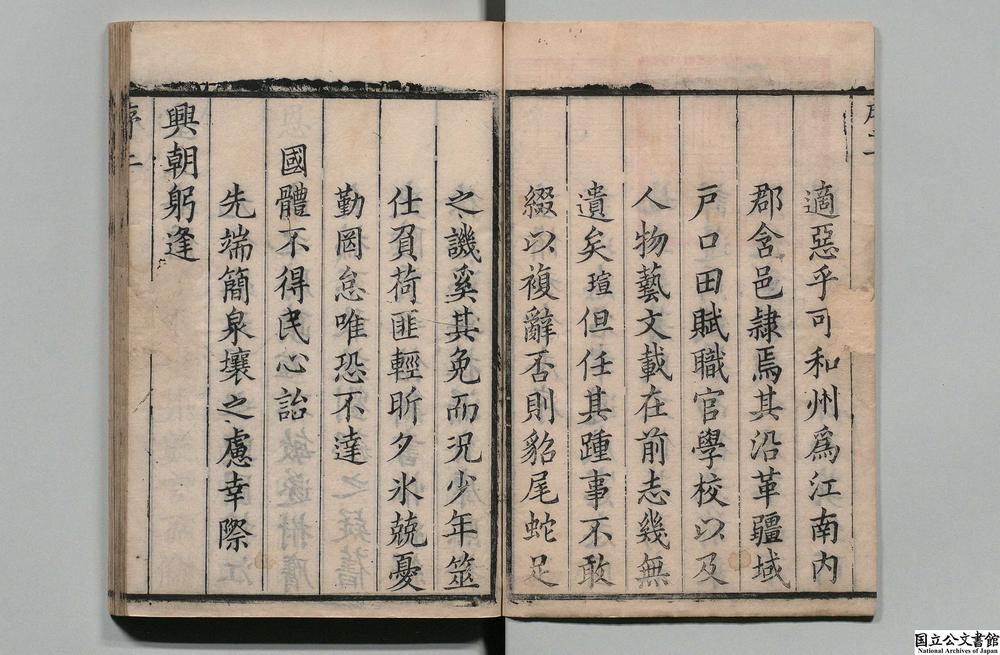 適惡乎可和州爲江南内
郡含邑隷焉其沿革疆域
戸口田賦職官學校以及
人物藝文載在前志幾無
遺矣瑄但任其踵事不敢
綴以複辭否則貂尾蛇足
之譏奚其免而況少年筮
仕負荷匪輕昕夕氷兢憂
勤罔怠唯恐不達
國體不得民心詒
先端簡泉壤之慮幸際
興朝躬逢
序二
国立公文書館
National Archives of Japan